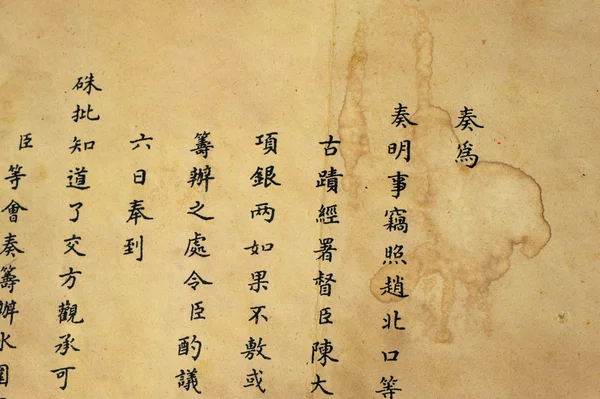 奏為
奏明事竊照趙北口等
古蹟經署督臣陳大
項銀两如果不敷或
籌辦之處令臣酌議
六日奉到
硃批知道了交方觀承可
臣等會奏籌辦水圍